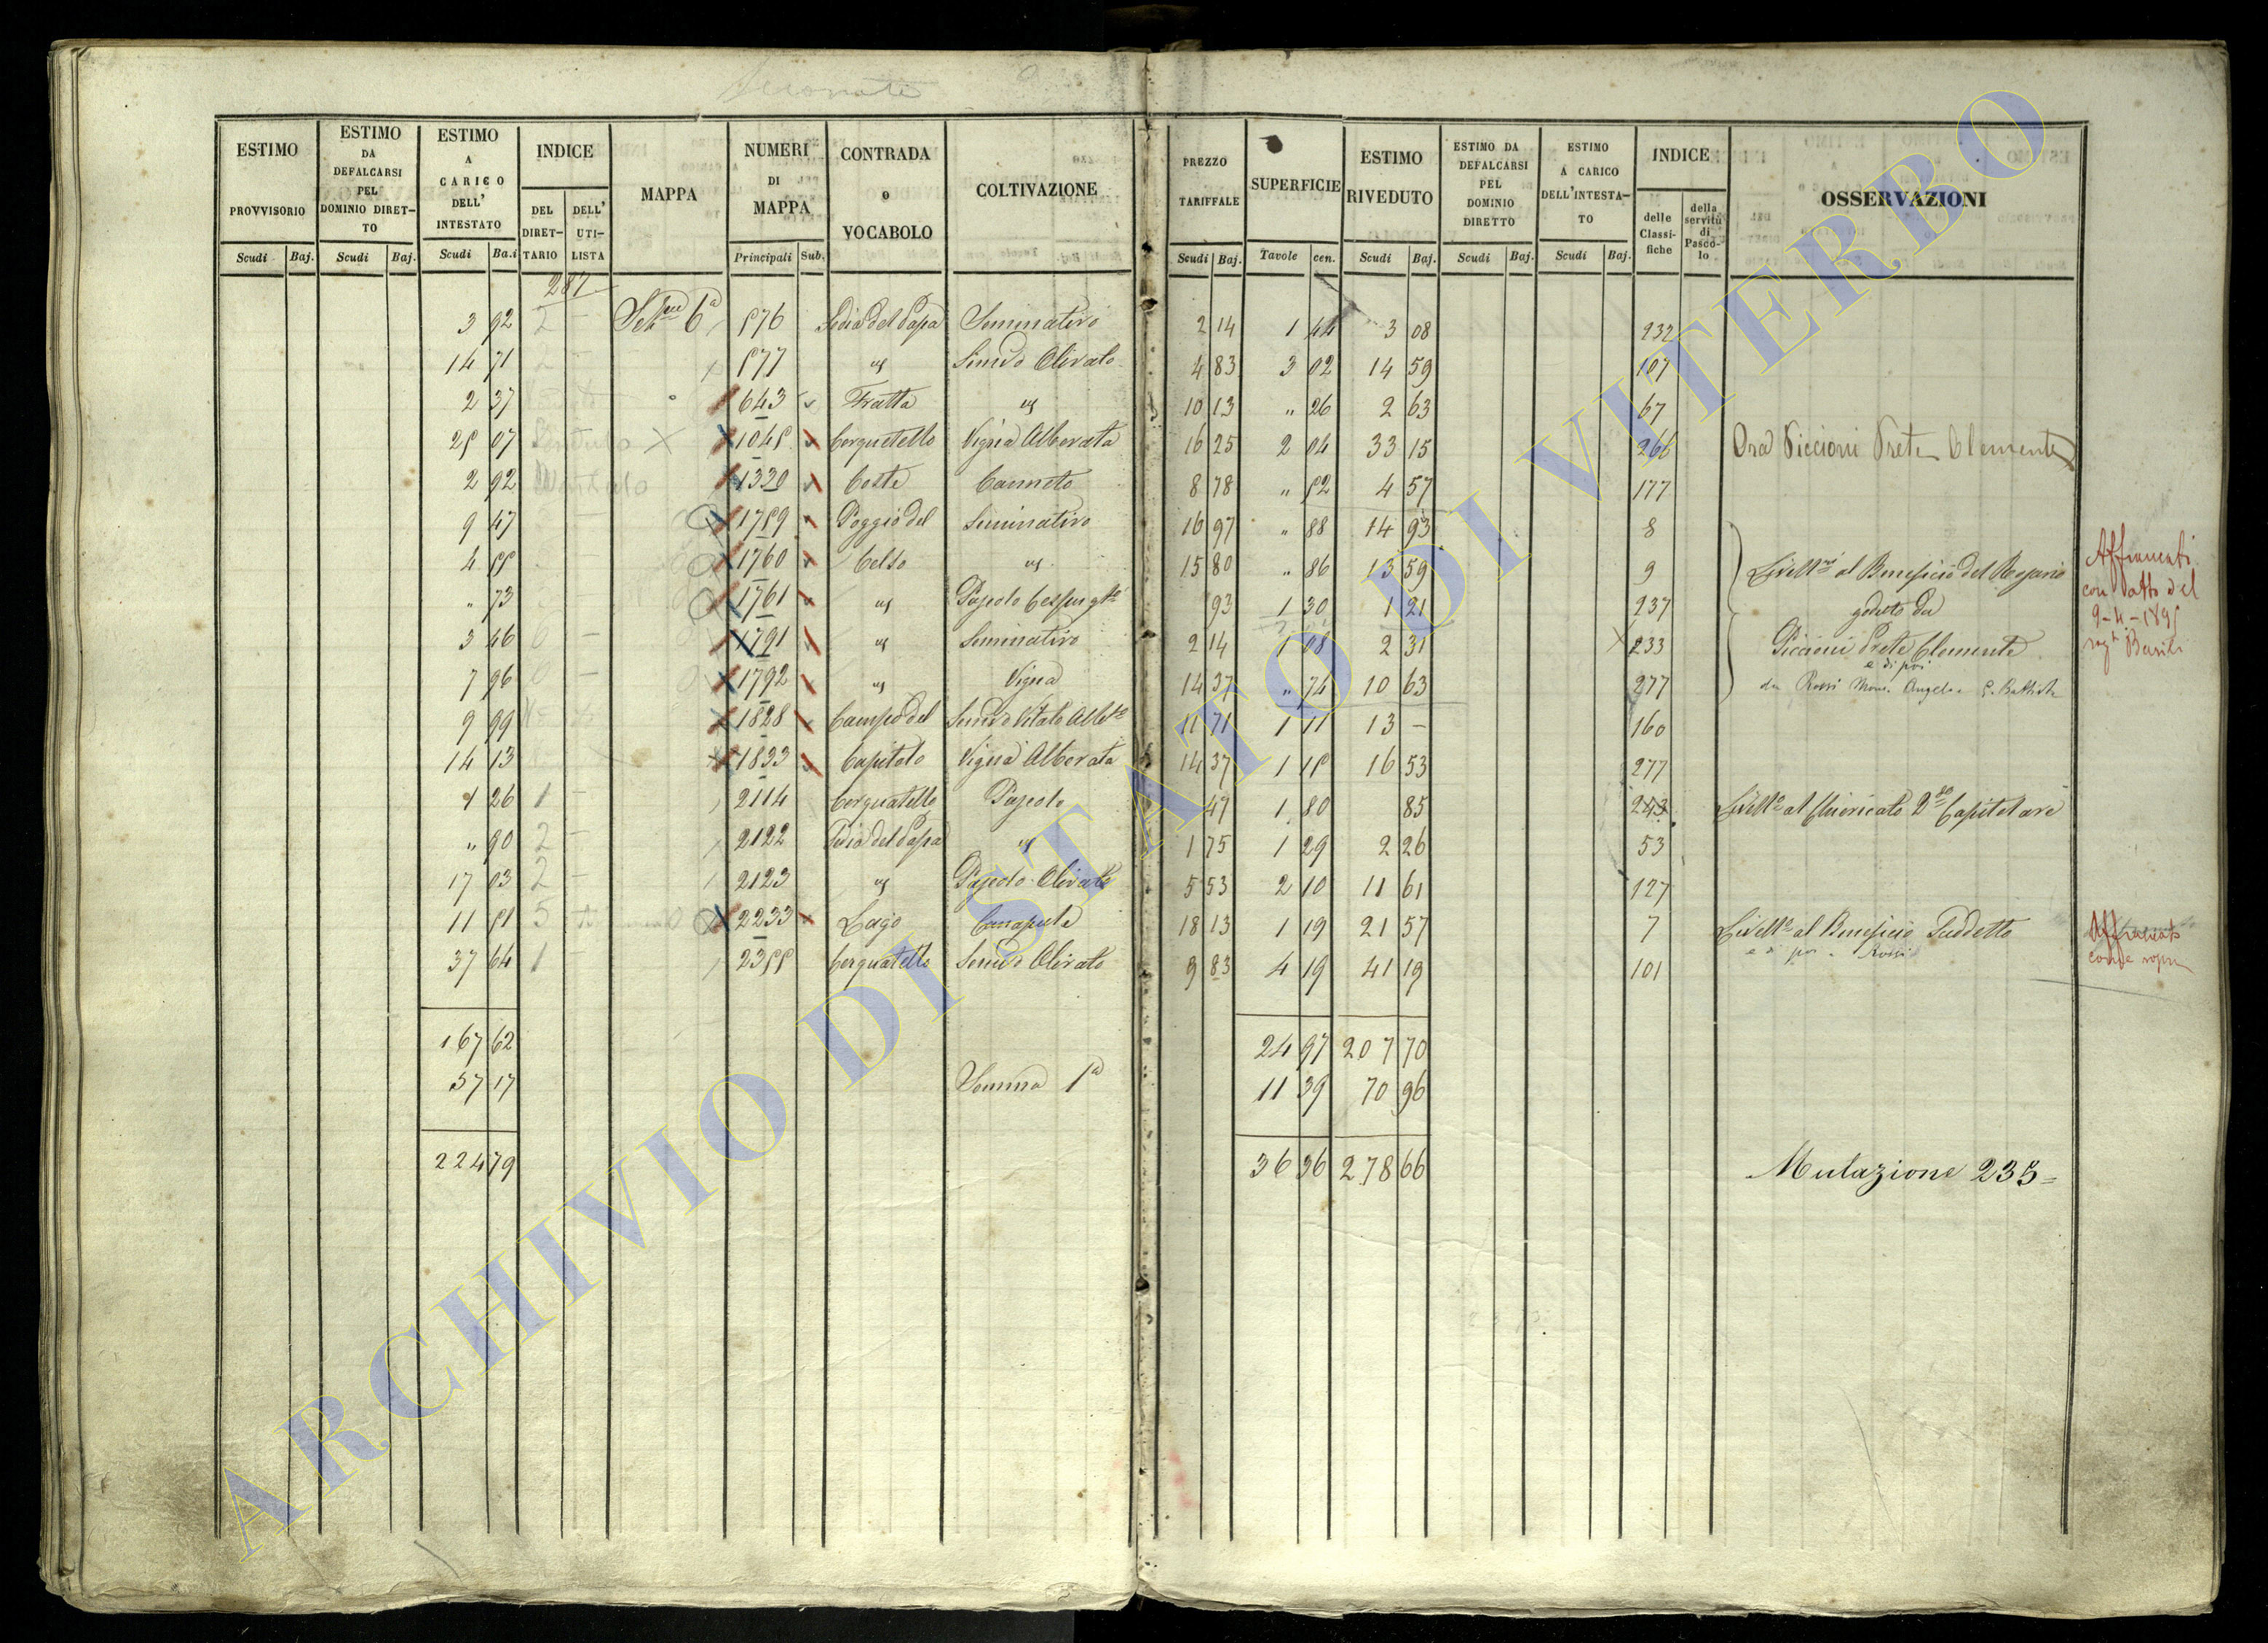 ESTIMO PROVVISORIO Scudi Baj.
ESTIMO DA DEFALCARSI PEL DOMINIO DIRETTO Scudi Baj.
ESTIMO A CARICO DELL' INTESTATO Scudi Ba.i
INDICE DEL DIRETTARIO DELL' UTILISTA
MAPPA
NUMERI DI MAPPA Principali Sub.
CONTRADA o VOCABOLO
COLTIVAZIONE
PREZZO TARIFFALE Scudi Baj.
SUPERFICIE Tavole cen.
ESTIMO RIVEDUTO Scudi Baj.
ESTIMO DA DEFALCARSI PEL DOMINIO DIRETTO Scudi Baj.
ESTIMO A CARICO DELL'INTESTATO Scudi Baj.
INDICE delle Classifiche della servitù di Pascolo
OSSERVAZIONI
287
3 92 2 - Sez.ne 6a 576 Sedia del Papa Seminativo 2 14 1 44 3 08 232
14 71 2 - 577 " Semvo Olivato 4 83 3 02 14 59 107
2 37 643 Fratta " 10 13 " 26 2 63 67
25 07 X 1045 Cerquetello Vigna Alberata 16 25 2 04 33 15 266 Ora Piccioni Prete Clemente
2 92 1330 Coste Canneto 8 78 " 52 4 57 177
9 47 1759 Poggio del Seminativo 16 97 " 88 14 93 8
4 55 1760 Celso " 15 80 " 86 13 59 9 Livell.ri al Beneficio del Rosario
" 73 1761 " Pascolo Cespugto 93 1 30 1 21 237 goduto da
3 46 0 - 1791 " Seminativo 2 14 1 08 2 31 233 Piccioni Prete Clemente
e di poi
7 96 0 - 1792 " Vigna 14 37 " 74 10 63 277 da Rossi Mons. Angelo e G. Battista
Affrancati
con atto del
9-4-1895
9 99 1828 Campo del Semvo Vitato Albto 11 71 1 11 13 - 160
14 13 1833 Capitolo Vigna Alberata 14 37 1 15 16 53 277
1 26 1 - 2114 Cerquatello Pascolo 47 1 80 85 243 Livello al Chiericato 2do Capitolare
" 90 2 - 2122 Sedia del Papa " 1 75 1 29 2 26 53
17 03 2 - 2123 " Pascolo Olivato 5 53 2 10 11 61 127
11 51 5 2233 Lago Canapule 18 13 1 19 21 57 7 Livello al Beneficio Suddetto
e di poi a Rossi
Affrancato
come sopra
37 64 1 - 2355 Cerquatello Semvo Olivato 9 83 4 19 41 19 101
167 62 24 97 207 70
57 17 Somma 1a 11 39 70 96
224 79 36 36 278 66
Mutazione 235=
ARCHIVIO DI STATO DI VITERBO